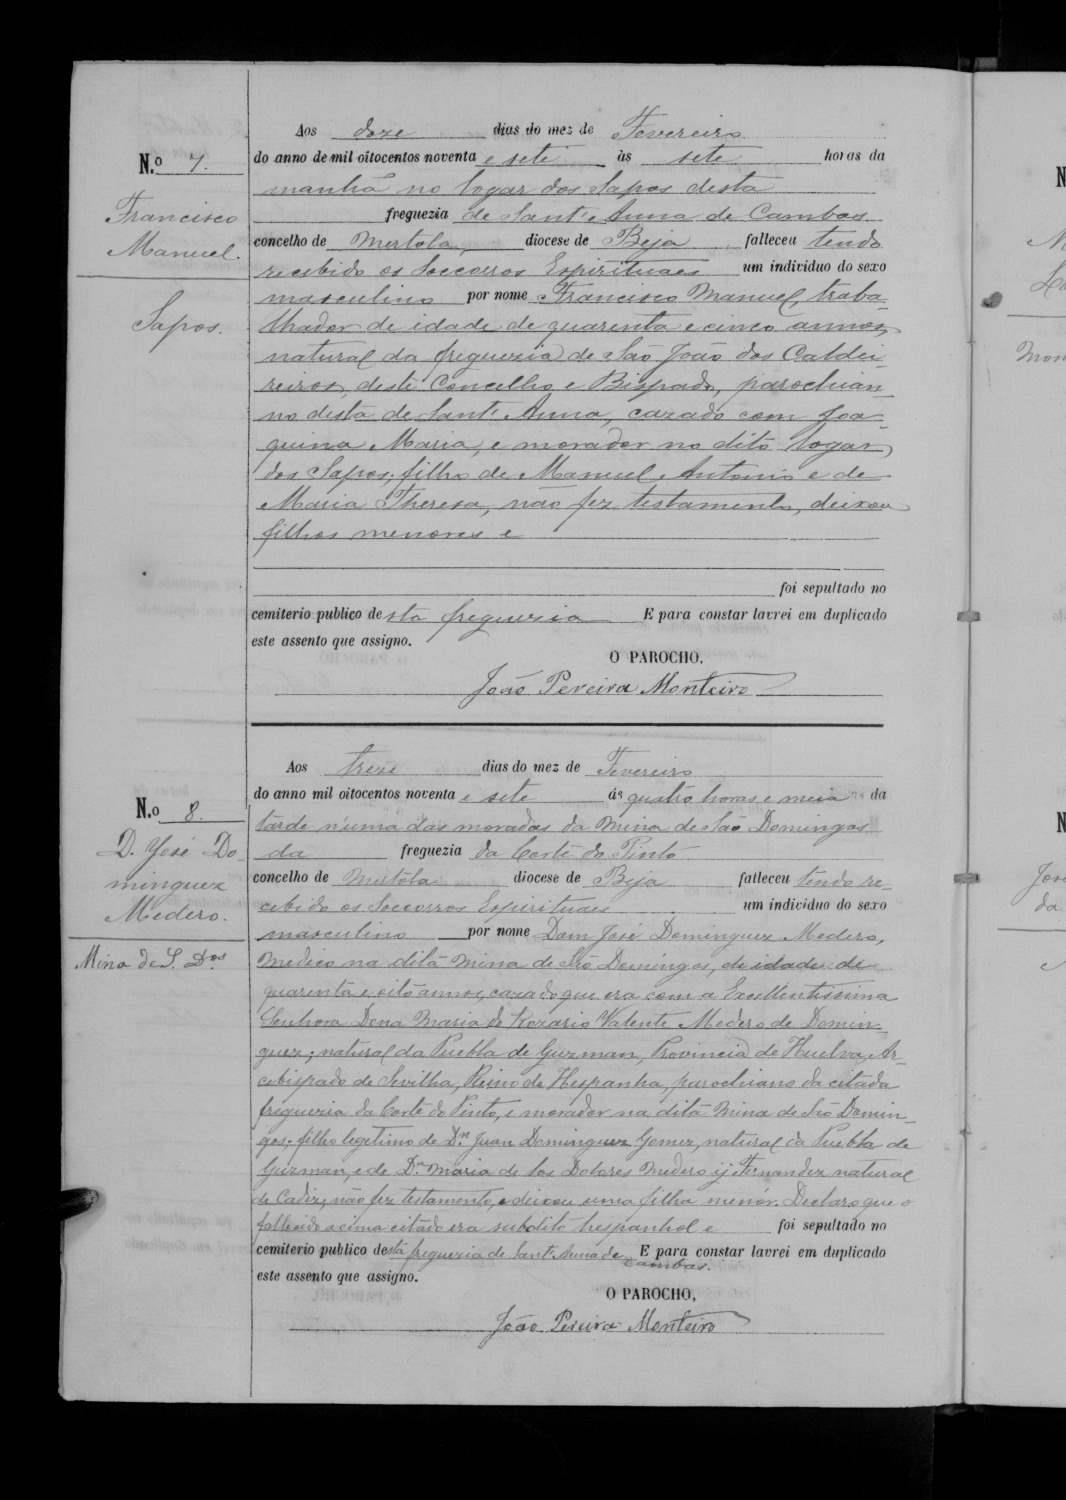 N.o 7.
Francisco
Manuel.
Sapos.
Aos doze dias do mez de Fevereiro
do anno de mil oitocentos noventa e sete ás sete horas da
manhã no logar dos Sapos desta
freguezia de Sant'Anna de Cambas
concelho de Mertola, diocese de Beja falleceu tendo
recebido os Soccorros Espirituaes um individuo do sexo
masculino por nome Francisco Manuel, traba-
lhador de idade de quarenta e cinco annos,
natural da freguezia de São João dos Caldei-
reiros, deste Concelho e Bispado, parochian-
no desta de Sant'Anna, cazado com Joa-
quina Maria, e morador no dito logar
dos Sapos, filho de Manuel Antonio e de
Maria Theresa, não fez testamento, deixou
filhos menores e
foi sepultado no
cemiterio publico desta freguezia E para constar lavrei em duplicado
este assento que assigno.
O PAROCHO,
João Pereira Monteiro
N.o 8.
D. José Do-
minguez
Medero.
Mina de S. Dos
Aos treze dias do mez de Fevereiro
do anno mil oitocentos noventa e sete ás quatro horas e meia da
tarde n'uma das moradas da Mina de São Domingos
da freguezia da Corte do Pinto
concelho de Mertola diocese de Beja falleceu tendo re-
cebido os Soccorros Espirituaes um individuo do sexo
masculino por nome Dom José Dominguez Medero,
medico na dita Mina de São Domingos, de idade de
quarenta e oito annos, cazado que era com a Excellentissima
Senhora Dona Maria do Rozario Valente Medero de Domin-
guez, natural da Puebla de Guzman, Provincia de Huelva, Ar-
cebispado de Sevilha, Reino de Hespanha, parochiano da citada
freguezia da Corte do Pinto, e morador na dita Mina de São Domin-
gos; filho legitimo de Dn Juan Dominguez Gomez, natural da Puebla de
Guzman, e de Da Maria de los Dolores Medero y Fernandez natural
de Cadiz, não fez testamento, e deixou uma filha menor. Declaro que o
fallecido acima citado era subdito hespanhol e foi sepultado no
cemiterio publico desta freguezia de Sant'Anna de Cambas. E para constar lavrei em duplicado
este assento que assigno.
O PAROCHO,
João Pereira Monteiro